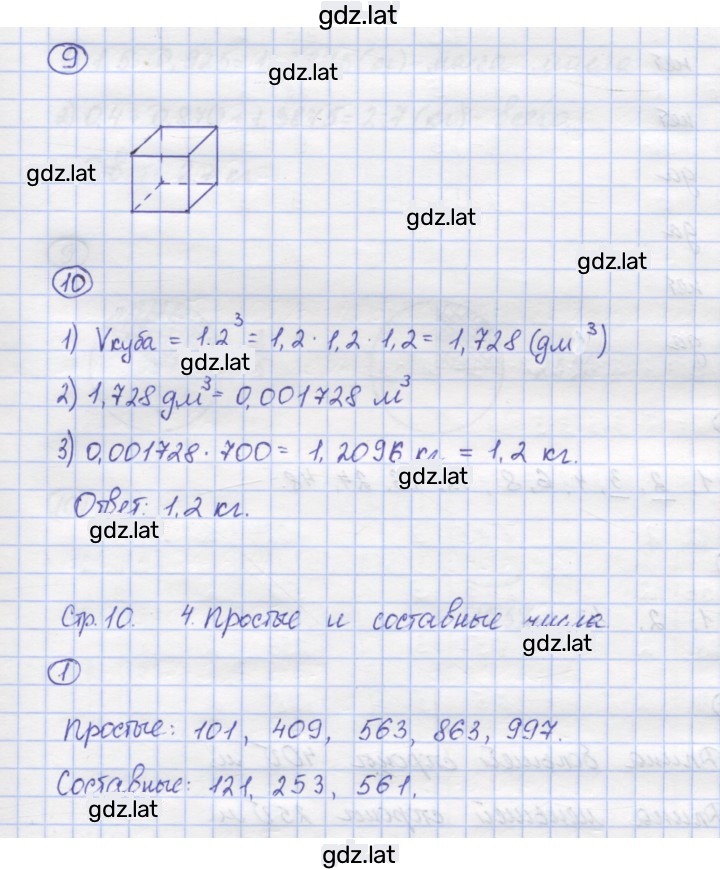 gdz.lat
9
gdz.lat
gdz.lat
gdz.lat
gdz.lat
10
1) Vкуба = 1.2³ = 1,2 · 1,2 · 1,2 = 1,728 (дм³)
gdz.lat
2) 1,728 дм³ = 0,001728 м³
3) 0,001728 · 700 = 1,2096 кг. = 1,2 кг.
gdz.lat
Ответ: 1,2 кг.
gdz.lat
Стр. 10. 4. Простые и составные числа
gdz.lat
1
Простые: 101, 409, 563, 863, 997.
Составные: 121, 253, 561.
gdz.lat
gdz.lat